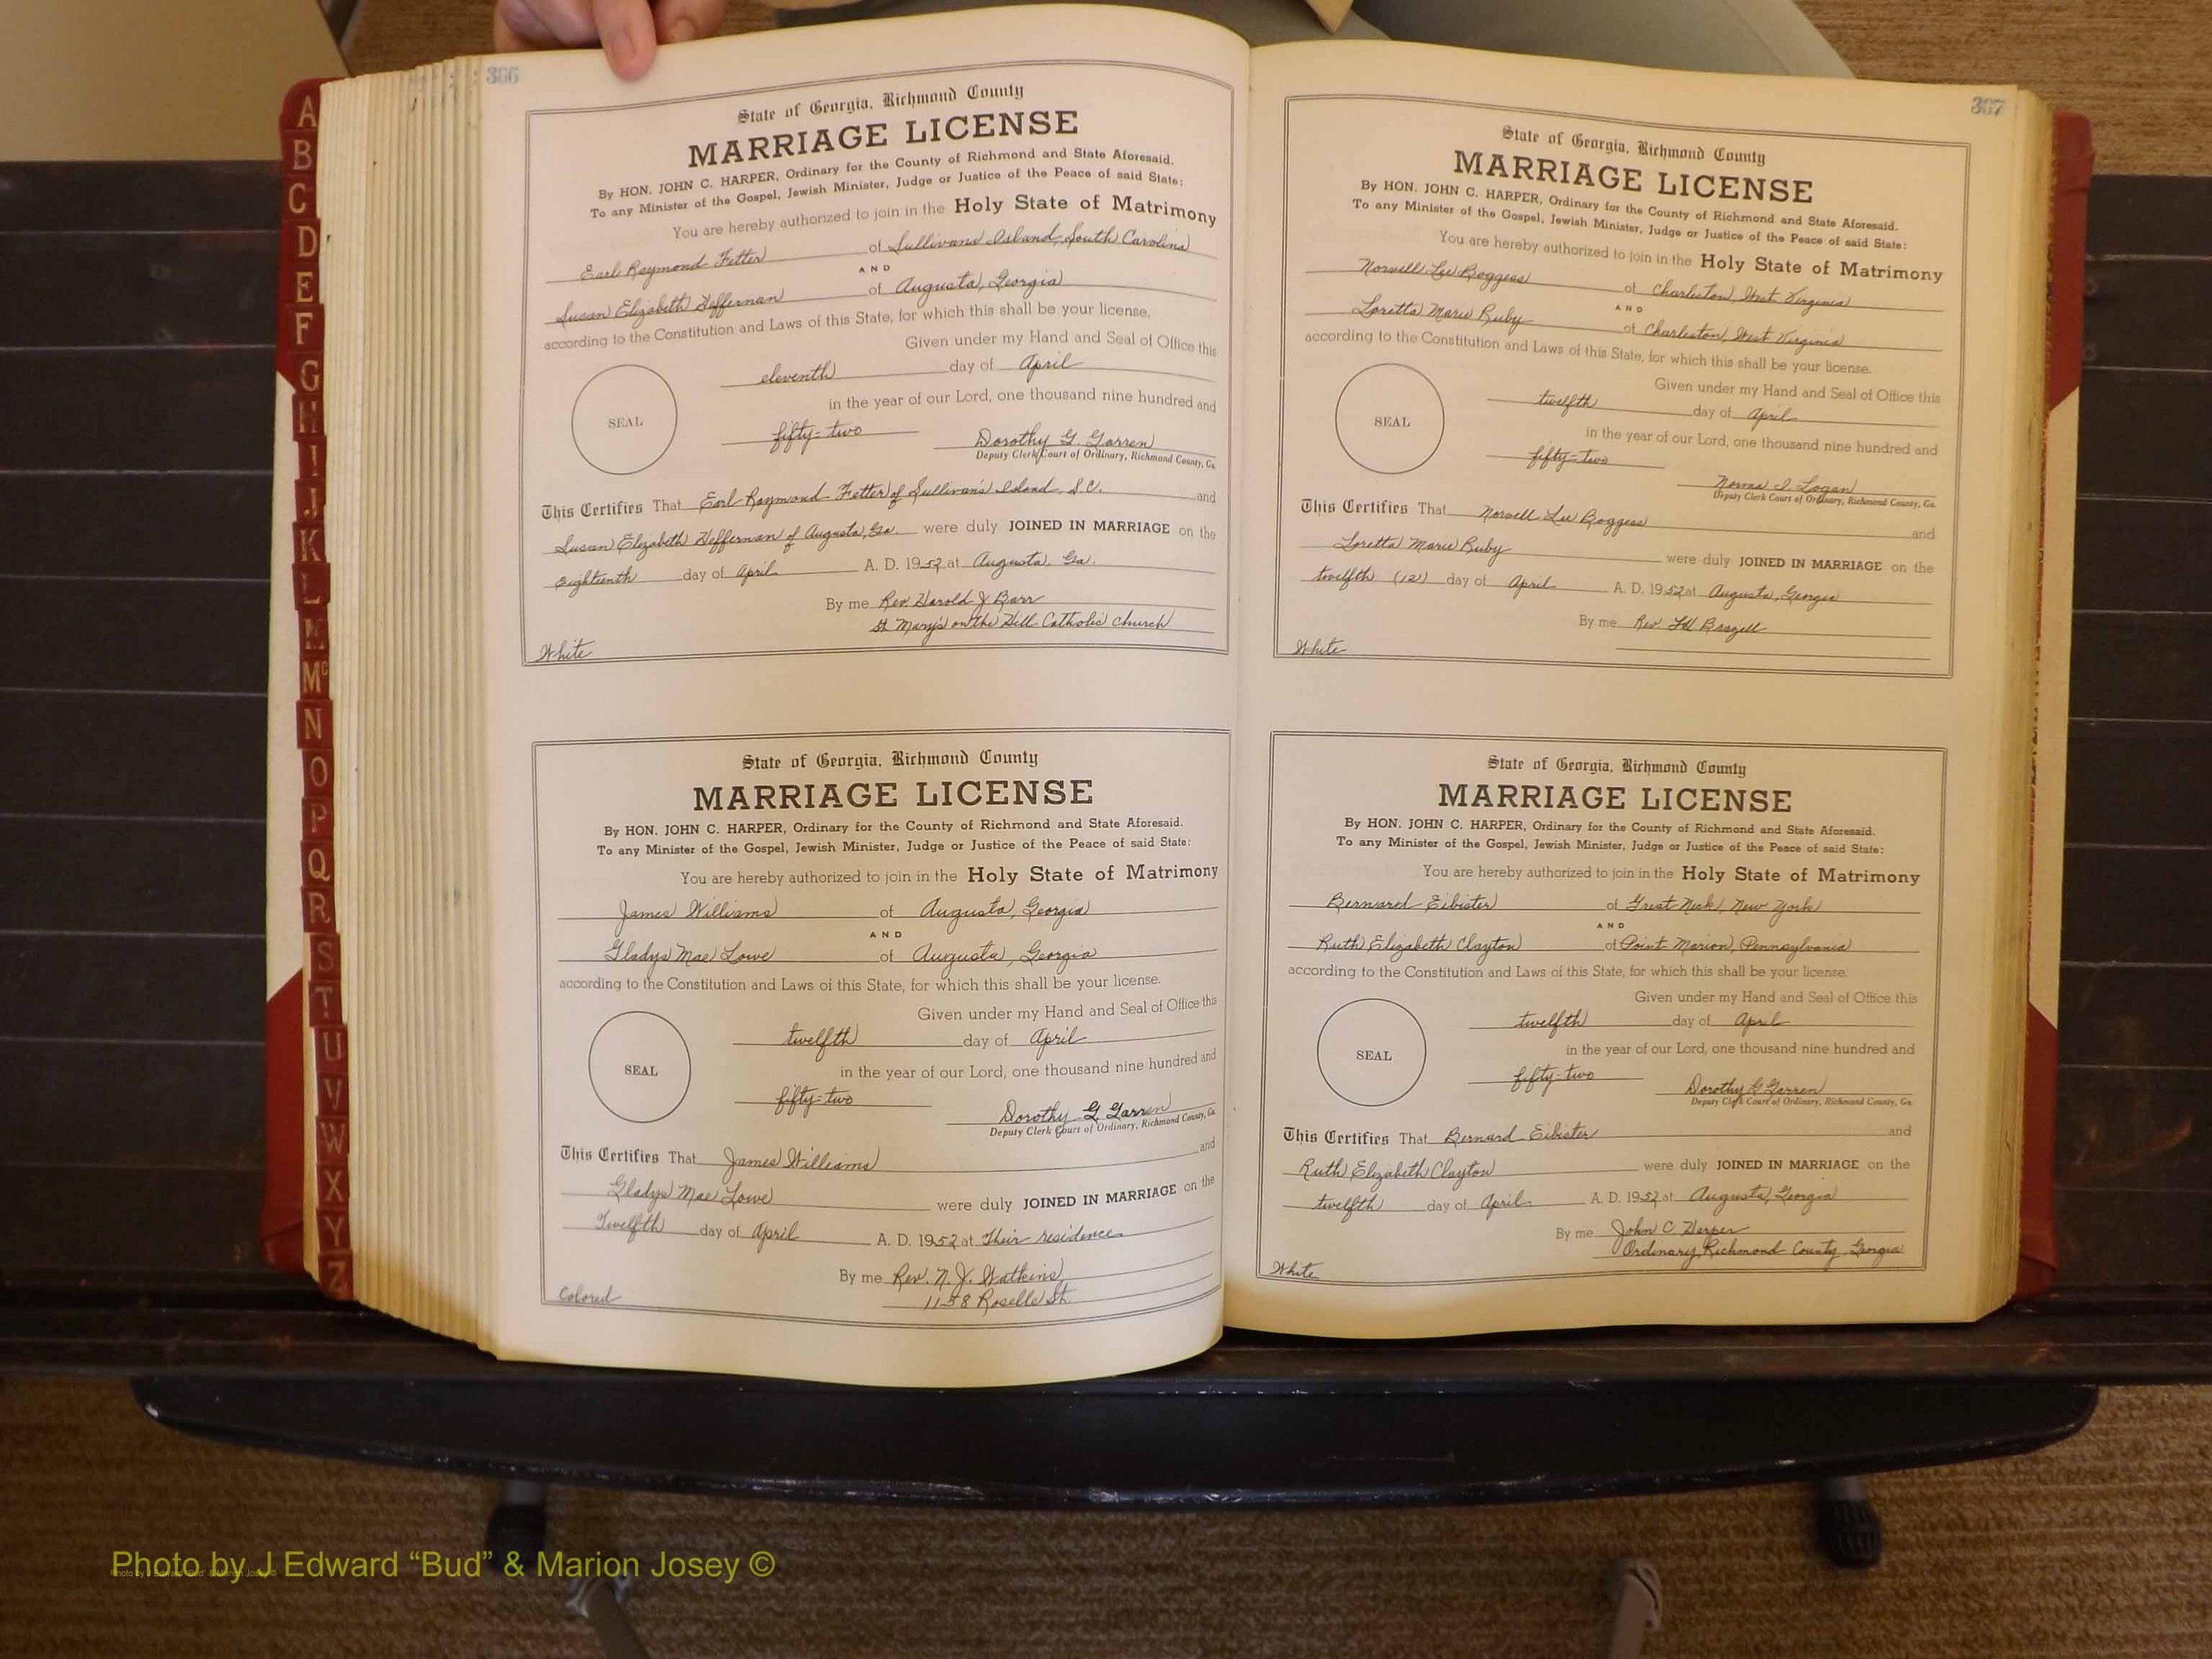 A
B
C
D
E
F
G
H
I
J
K
L
M
Mc
N
O
P
Q
R
S
T
U
V
W
X
Y
Z
306
State of Georgia, Richmond County
MARRIAGE LICENSE
By HON. JOHN C. HARPER, Ordinary for the County of Richmond and State Aforesaid.
To any Minister of the Gospel, Jewish Minister, Judge or Justice of the Peace of said State:
You are hereby authorized to join in the Holy State of Matrimony
Earl Raymond Fetter of Sullivans Island, South Carolina
AND
Susan Elizabeth Heffernan of Augusta, Georgia
according to the Constitution and Laws of this State, for which this shall be your license.
Given under my Hand and Seal of Office this
eleventh day of April
in the year of our Lord, one thousand nine hundred and
SEAL
fifty-two Dorothy G. Garren
Deputy Clerk Court of Ordinary, Richmond County, Ga.
This Certifies That Earl Raymond Fetter of Sullivan's Island, S.C. and
Susan Elizabeth Heffernan of Augusta, Ga. were duly JOINED IN MARRIAGE on the
eighteenth day of April A. D. 1952 at Augusta, Ga.
By me Rev. Harold J Barr
St Mary's on the Hill Catholic church
White
State of Georgia, Richmond County
MARRIAGE LICENSE
By HON. JOHN C. HARPER, Ordinary for the County of Richmond and State Aforesaid.
To any Minister of the Gospel, Jewish Minister, Judge or Justice of the Peace of said State:
You are hereby authorized to join in the Holy State of Matrimony
James Williams of Augusta, Georgia
AND
Gladys Mae Lowe of Augusta, Georgia
according to the Constitution and Laws of this State, for which this shall be your license.
Given under my Hand and Seal of Office this
twelfth day of April
SEAL
in the year of our Lord, one thousand nine hundred and
fifty-two Dorothy G Garren
Deputy Clerk Court of Ordinary, Richmond County, Ga.
This Certifies That James Williams and
Gladys Mae Lowe were duly JOINED IN MARRIAGE on the
Twelfth day of April A. D. 1952 at Their residence
By me Rev. N. J. Watkins
1158 Roselle St.
Colored
307
State of Georgia, Richmond County
MARRIAGE LICENSE
By HON. JOHN C. HARPER, Ordinary for the County of Richmond and State Aforesaid.
To any Minister of the Gospel, Jewish Minister, Judge or Justice of the Peace of said State:
You are hereby authorized to join in the Holy State of Matrimony
Norvell Lee Boggess of Charleston, West Virginia
AND
Loretta Marie Ruby of Charleston, West Virginia
according to the Constitution and Laws of this State, for which this shall be your license.
Given under my Hand and Seal of Office this
twelfth day of April
SEAL
in the year of our Lord, one thousand nine hundred and
fifty-two Norma I. Logan
Deputy Clerk Court of Ordinary, Richmond County, Ga.
This Certifies That Norvell Lee Boggess and
Loretta Marie Ruby were duly JOINED IN MARRIAGE on the
twelfth (12) day of April A. D. 1952 at Augusta, Georgia
By me Rev. Brazell
White
State of Georgia, Richmond County
MARRIAGE LICENSE
By HON. JOHN C. HARPER, Ordinary for the County of Richmond and State Aforesaid.
To any Minister of the Gospel, Jewish Minister, Judge or Justice of the Peace of said State:
You are hereby authorized to join in the Holy State of Matrimony
Bernard Eibister of Great Neck, New York
AND
Ruth Elizabeth Clayton of Point Marion, Pennsylvania
according to the Constitution and Laws of this State, for which this shall be your license.
Given under my Hand and Seal of Office this
twelfth day of April
in the year of our Lord, one thousand nine hundred and
SEAL
fifty-two Dorothy G Garren
Deputy Clerk Court of Ordinary, Richmond County, Ga.
This Certifies That Bernard Eibister and
Ruth Elizabeth Clayton were duly JOINED IN MARRIAGE on the
twelfth day of April A. D. 1952 at Augusta, Georgia
By me John C. Harper
Ordinary, Richmond County, Georgia
White
Photo by J Edward “Bud” & Marion Josey ©
Photo by J Edward “Bud” & Marion Josey ©